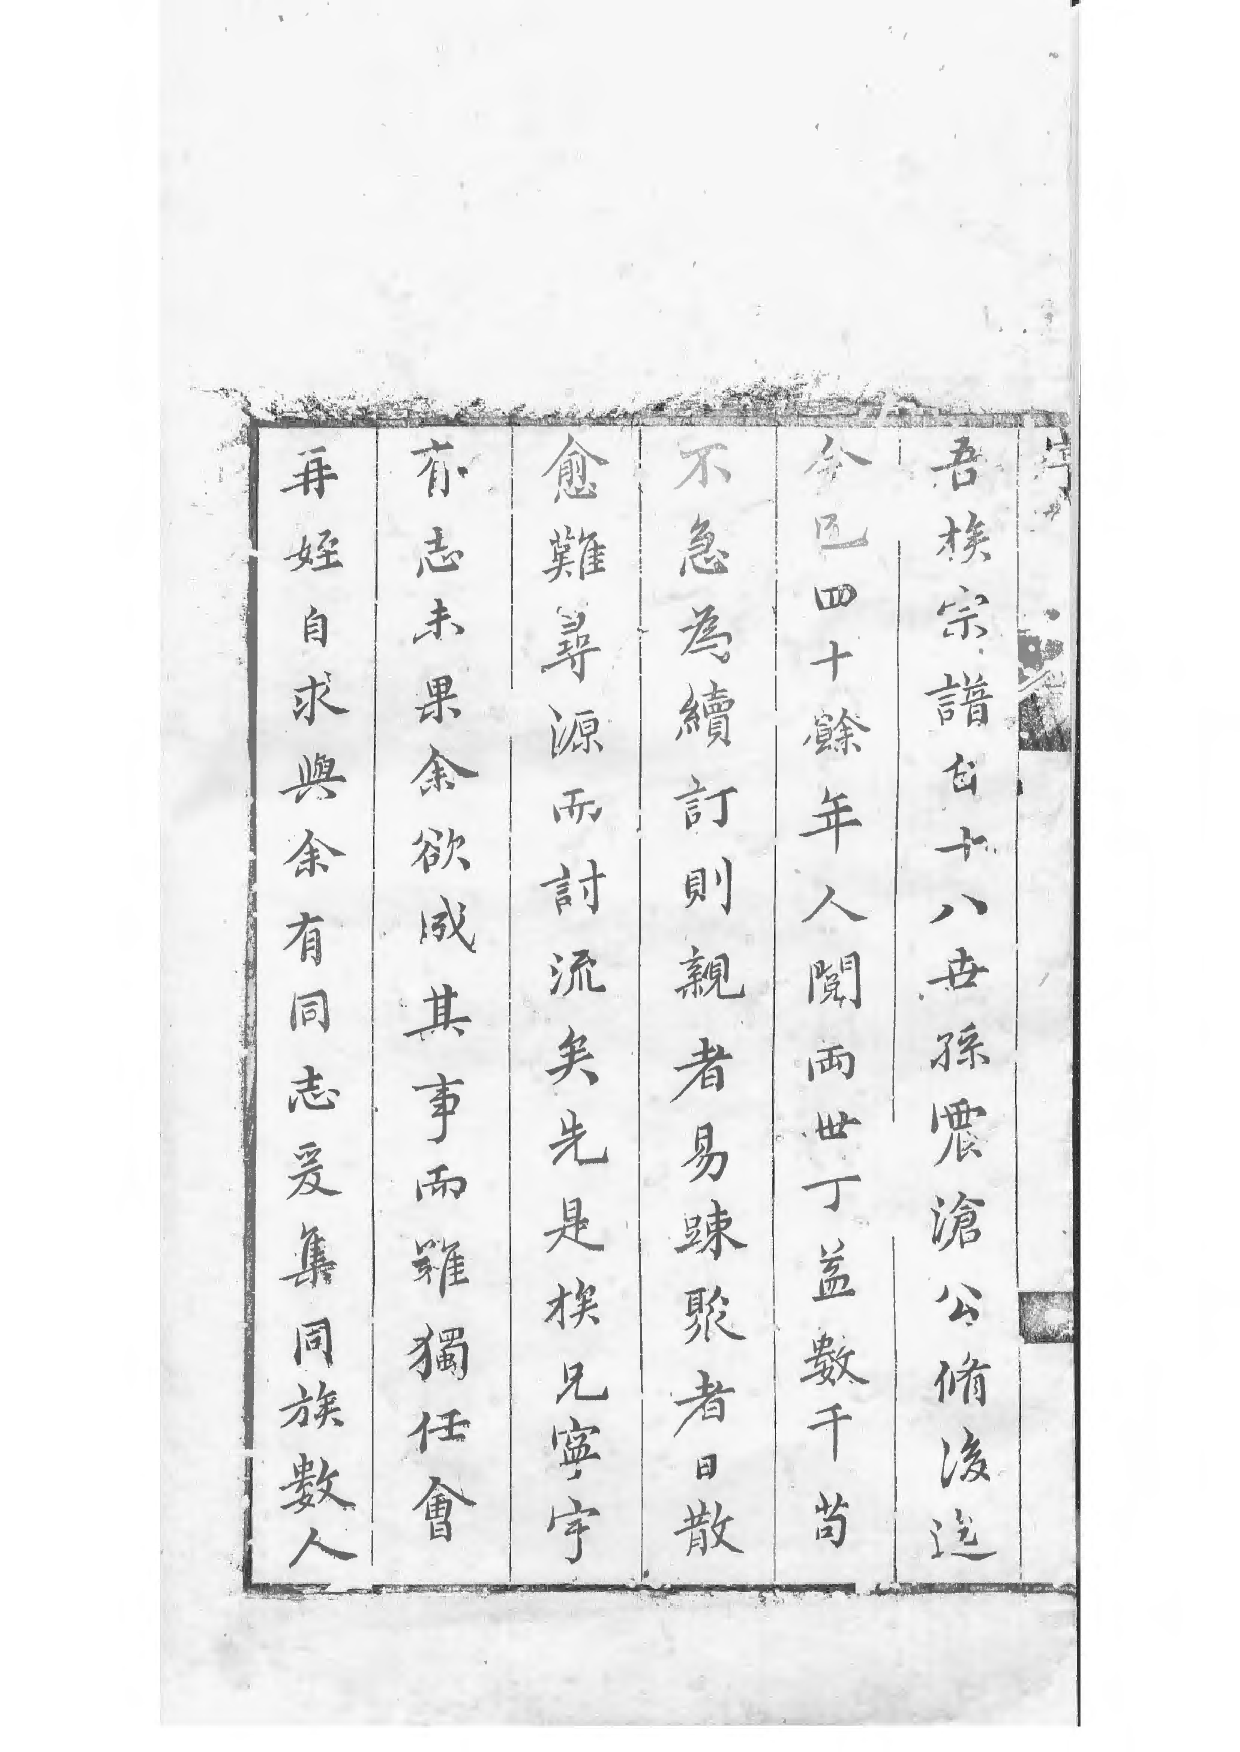 吾族宗譜自十八世孫震滄公脩後迄
今已四十餘年人閱兩世丁盖數千苟
不急為續訂則親者易踈聚者日散
愈難尋源而討流矣先是族兄寧宇
有志未果余欲成其事而難獨任會
再姪自求與余有同志爰集同族數人